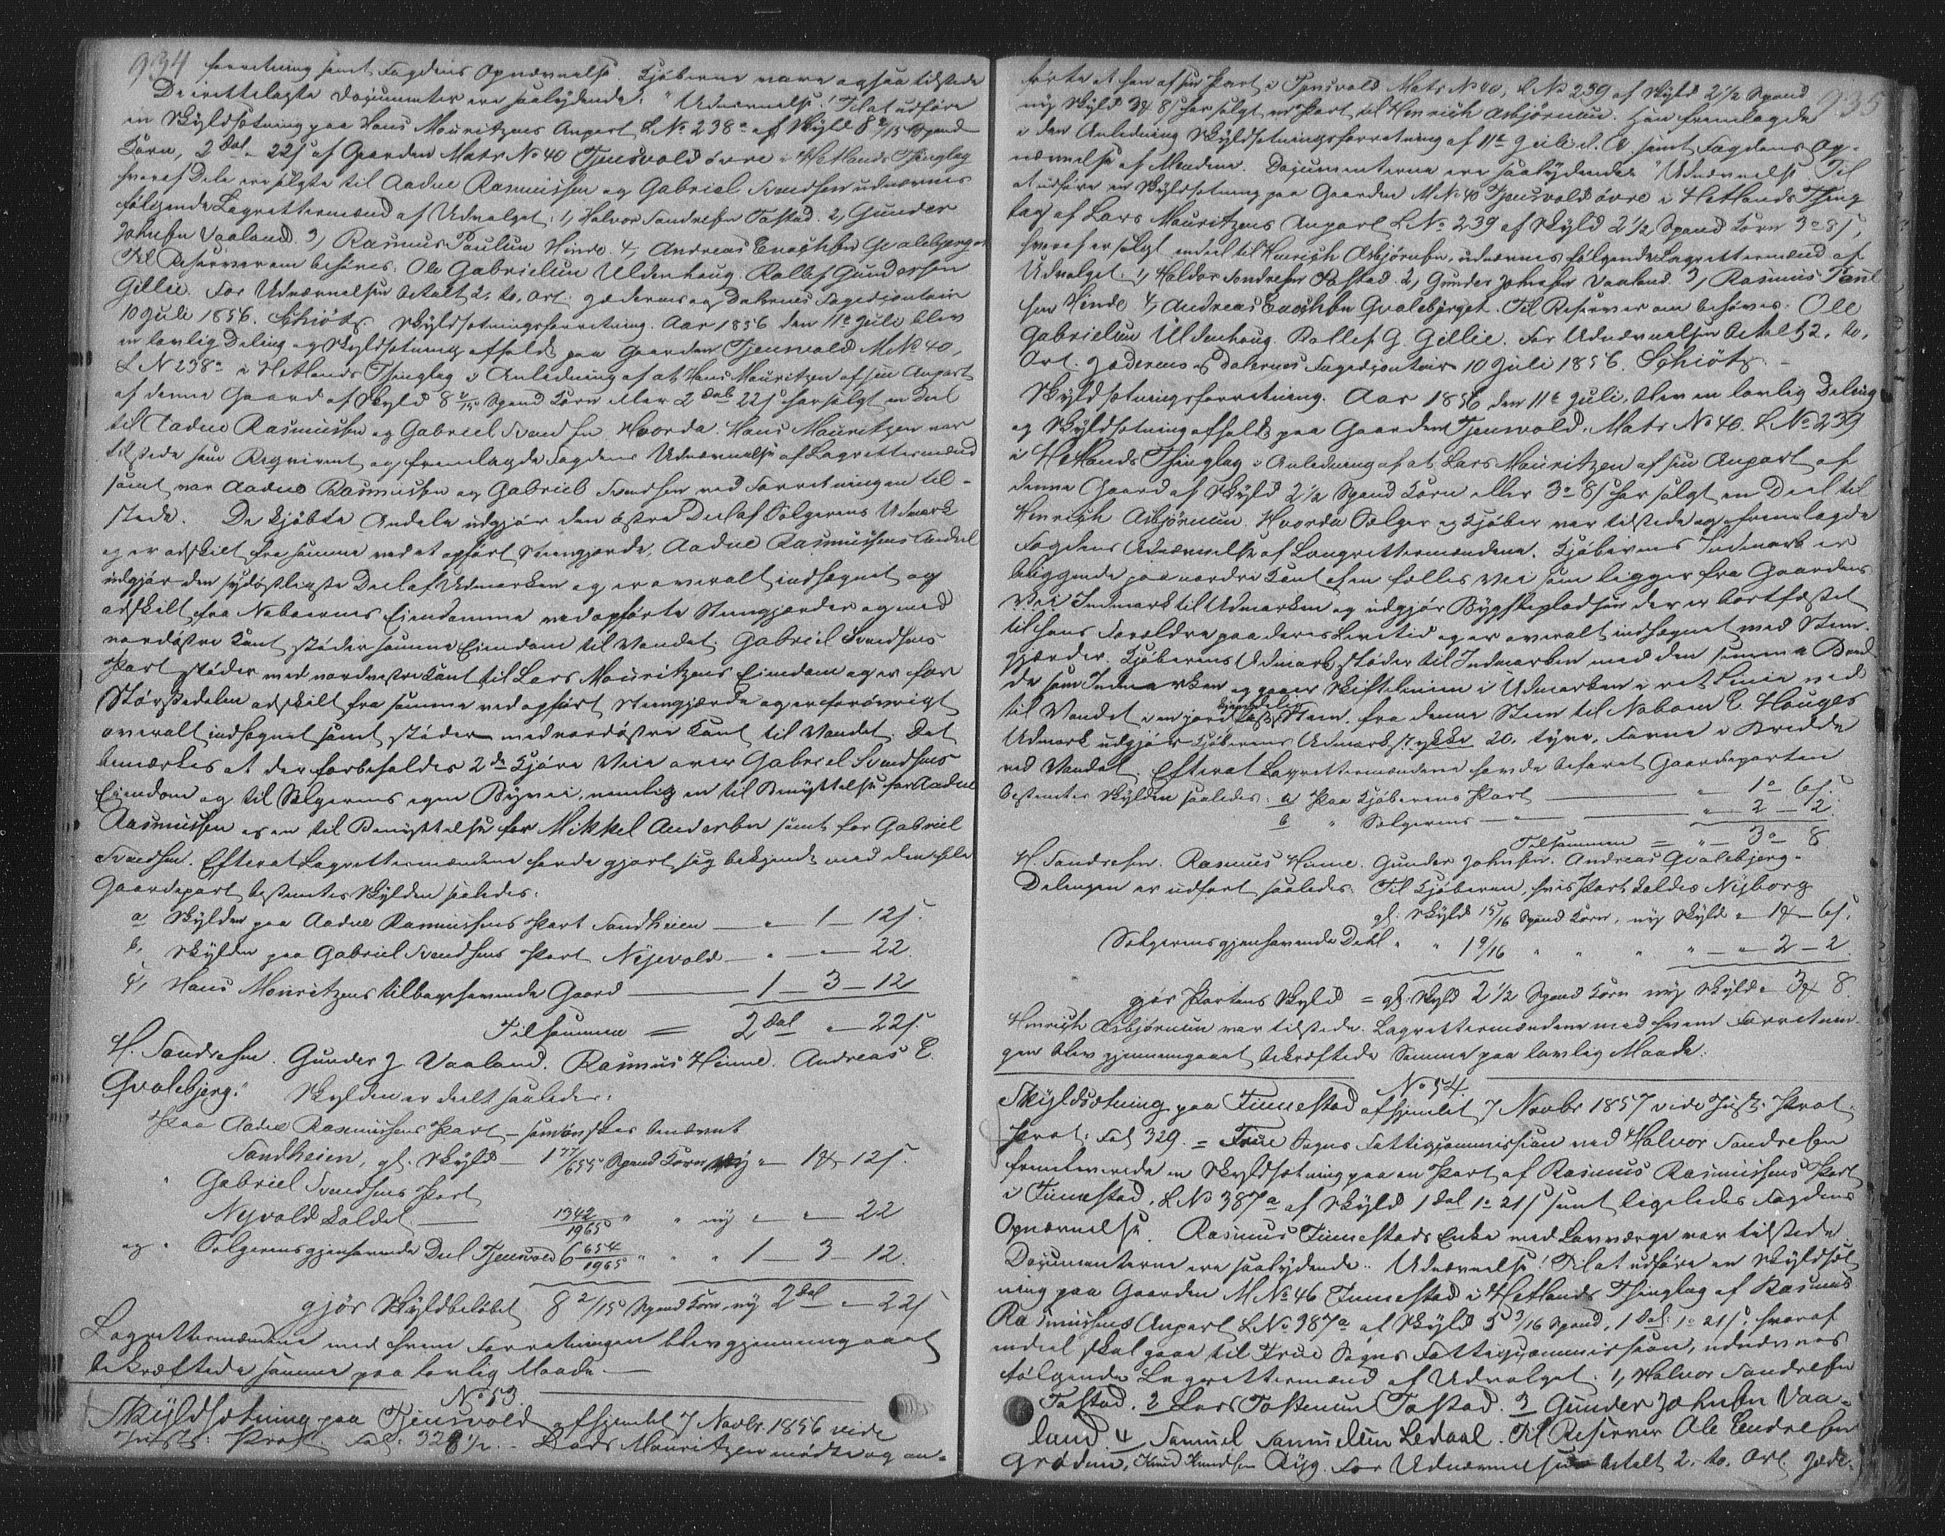 934
forretning samt Fogdens Opnævnelse. Kjøberne vare ogsaa tilstede
De rettelagte Documenter ere saalydende: "Udnævnelse! Til at udføre
en Skyldsætning paa Hans Mouritzens Anpart L No 238a af Skyld 8 2/15 Spand
Korn, 2 Dal - 22 s af Gaarden Matr No 40 Tjensvold øvre i Hetlands Thinglag
hvoraf Dele ere solgte til Aadne Rasmussen og Gabriel Svendsen udnævnes
følgende Lagrettemænd af Udvalget: 1, Halvor Sandresen Tastad. 2, Gunder
Johnsen Vaaland 3, Rasmus Paulsen Hinde 4, Andreas Enochsen Qvalebjerget
Til Reserver om behøves: Ole Gabrielsen Uldenhoug, Rollef Gundersen
Gillie. For Udnævnelsen betalt 2, to, Ort. Jæderens og Dalernes Fogedcontoir
10 Juli 1856. Schiøtz. Skyldsætningsforretning. Aar 1856 den 11te Juli blev
en lovlig Deling og Skyldsætning afholdt paa Gaarden Tjensvold M No 40,
L N 238a i Hetlands Thinglag i Anledning af at Hans Mouritzen af sin Anpart
af denne Gaard af Skyld 8 2/15 Spand Korn eller 2 Dal 22 s har solgt en Deel
til Aadne Rasmussen og Gabriel Svendsen. Hvorda Hans Mouritzen var
tilstede som Reqvirent og fremlagde Fogdens Udnævnelse af Lagrettemænd
samt var Aadne Rasmussen og Gabriel Svendsen ved Forretningen til-
stede. De kjøbte Andele udgjør den østre Deel af Sælgerens Udmark
og er adskilt fra samme ved et opført Steengjærde, Aadne Rasmussens Andeel
udgjør den sydøstligste Deel af Udmarken og er overalt indhegnet og
adskilt fra Naboernes Eiendomme ved opførte Steengjærder og med
nordøstre Kant støder samme Eiendom til Vandet. Gabriel Svendsens
Part støder med nordvestre Kant til Lars Mouritzens Eiendom og er for
Størstedelen adskilt fra samme ved opført Steengjærde og er forøvrigt
overalt indhegnet samt støder med nordøstre Kant til Vandet. Det
bemærkes at der forbeholdes 2de Kjøre Veie over Gabriel Svendsens
Eiendom og til Sælgerens egen Byvei, nemlig en til Benyttelse for Aadne
Rasmussen og en til Benyttelse for Mikkel Andersen samt for Gabriel
Svendsen. Efterat Lagrettemændene havde gjort sig bekjendt med den hele
Gaardepart bestemtes Skylden saaledes:
a Skylden paa Aadne Rasmussens Part Sandheien — " — 1 — 12 s.
b, Skylden paa Gabriel Svendsens Part Nyevold — " — " — 22.
c, Hans Mouritzens tilbagehavende Gaard — 1 — 3 — 12
Tilsammen = 2 Dal " — 22 s.
H. Sandresen. Gunder J Vaaland. Rasmus Hinne. Andreas E.
Qvalebjerg. Skylden er deelt saaledes:
Paa Aadne Rasmussens Part — som ønskes benævnt
Sandheien, gl. Skyld — 1 77/655 Spand Korn ny " — 1 — 12 s.
" Gabriel Svendsens Part
Nyvold kaldet — 1342/1965 " " ny " — " — 22
og " Sælgerens gjenhavende Deel Tjensvold 6 654/1965 " " " 1 — 3 — 12.
gjør Skyldbeløbet 8 2/15 Spand Korn, ny 2 Dal " — 22 s
Lagrettemændene med hvem Forretningen blev gjennemgaaet
bekræftede samme paa lovlig Maade. —
No 53
Skyldsætning paa Tjensvold afhjemlet 7 Novbr 1856 vide
Justs: Prot Fol: 328 1/2. - Lars Mouritzen mødte og an-
935
førte at han af sin Part i Tjensvold Matr No 40, L No 239 af Skyld 2 1/2 Spand
ny Skyld 3 8 s har solgt en Part til Henrich Asbjørnsen. Han fremlagde
i den Anledning Skyldsætningsforretning af 11te Juli d. A samt Fogdens Op-
nævnelse af Mændene. Documenterne ere saalydende "Udnævnelse. Til
at udføre en Skyldsætning paa Gaarden M No 40 Tjensvold øvre i Hetlands Thing
lag af Lars Mouritzens Anpart L No 239 af Skyld 2 1/2 Spand Korn 3 o 8 s,
hvoraf er solgt endeel til Henrich Asbjørnsen, udnævnes følgende Lagrettemænd af
Udvalget: 1, Haldor Sandresen Tastad. 2, Gunder Johnsen Vaaland 3, Rasmus Paul
sen Hinde 4, Andreas Enochsen Qvalebjerget. Til Reserver om behøves. Ole
Gabrielsen Uldenhoug. Rollef G. Gillie. For Udnævnelsen betalt 2, to,
Ort. Jæderens og Dalernes Fogedcontoir 10 Juli 1856. Schiøtz.
Skyldsætningsforretning. Aar 1856 den 11te Juli, blev en lovlig Deling
og Skyldsætning afholdt paa Gaarden Tjensvold, Matr No 40. L No 239
i Hetlands Thinglag i Anledning af at Lars Mouritzen af sin Anpart af
denne Gaard af Skyld 2 1/2 Spand Korn eller 3 o 8 s har solgt en Deel til
Henrich Asbjørnsen. Hvorda Sælger og Kjøber var tilstede og fremlagde
Fogdens Udnævnelse af Laugrettemændene. Kjøberens Indmark er
beliggende paa nordre Kant af en fælles Vei som ligger fra Gaardens
Indmark til Udmarken og udgjør Bygslepladsen der er bortfæstet
til hans Forældre paa deres Levetid og er overalt indhegnet med Steen-
gjærder. Kjøberens Udmark støder til Indmarken med den samme Bred
de som Indmarken og gaaer Skiftelinien i Udmarken i ret Linie ned
til Vandet i en jordfast kjendelig Steen. fra denne Steen til Naboen E Houges
Udmark udgjør Kjøberens Udmarkstykke 20, tyve, Favne i Bredde
ved Vandet. Efterat Lagrettemændene havde befaret Gaardeparten
bestemtes Skylden saaledes: a Paa Kjøberens Part — " 1 o 6 s.
b " Sælgerens — " — " 2 — 2.
Tilsammen = " — 3 o 8
H. Sandresen. Rasmus Hinne. Gunder Johnsen. Andreas Qvalebjerg.
Delingen er udført saaledes: Til Kjøberen, hvis Part kaldes Nyborg
gl. Skyld 15/16 Spand Korn, ny Skyld " 1 — 6 s.
Sælgerens gjenhavende Deel " " 1 9/16 " " " " — " — 2 — 2.
gjør Partens Skyld = gl. Skyld 2 1/2 Spand Korn ny Skyld " 3 8
Henrich Asbjørnsen var tilstede. Lagrettemændene med hvem Forretnin-
gen blev gjennemgaaet bekræftede Samme paa lovlig Maade.
No 54.
Skyldsætning paa Finnestad afhjemlet 7 Novbr 1857 vide Justs. Prot.
Prot: Fol 329. = Frue Sogns Fattigcommission ved Halvor Sandresen
fremleverede en Skyldsætning paa en Part af Rasmus Rasmussens Part
i Finnestad, L No 387a af Skyld 1 Dal 1 o 21 s samt ligeledes Fogdens
Opnævnelse. Rasmus Finnestads Enke med Lavværge var tilstede
Documenterne ere saalydende: Udnævnelse! Til at udføre en Skyldsæt
ning paa Gaarden M No 46 Finnestad i Hetlands Thinglag af Rasmus
Rasmussens Anpart L No 387a af Skyld 5 3/16 Spand, 1 Dal 1 o 21 s, hvoraf
endeel skal gaae til Frue Sogns Fattigcommission, udnævnes
følgende Lagrettemænd af Udvalget: 1, Halvor Sandresen
Tastad. 2 Lars Tostensen Tastad. 3 Gunder Johnsen Vaa-
land. 4 Samuel Samuelsen Ledaal. Til Reserver Ole Endresen
Grødem, Knud Knudsen Ryg. For Udnævnelsen betalt 2, to, Ort. Jæde-